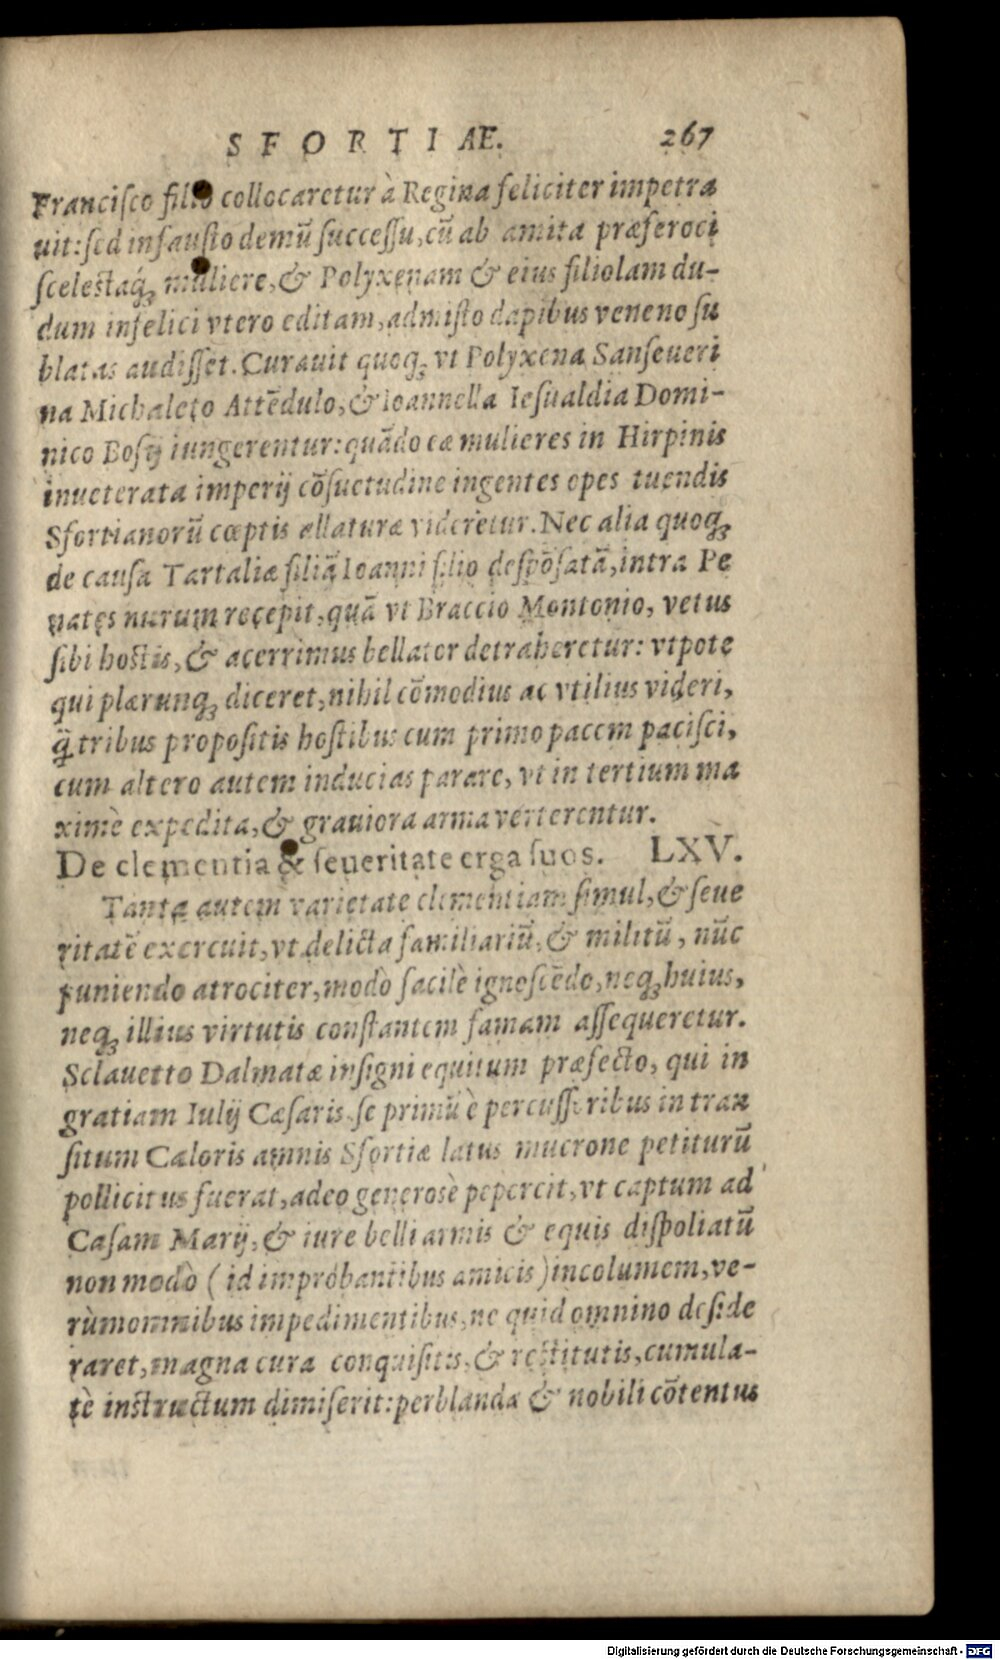 SFORTIAE. 267
Francisco filio collocaretur à Regina feliciter impetra
uit: sed infausto demũ successu, cũ ab amita præferoci
scelestaq́; muliere, & Polyxenam & eius filiolam du-
dum infelici vtero editam, admisto dapibus veneno su
blatas audisset. Curauit quoq; vt Polyxena Sanseueri
na Michaleto Attẽdulo, & Ioannella Iesualdia Domi-
nico Bosij iungerentur: quãdo eæ mulieres in Hirpinis
inueterata imperij cõsuetudine ingentes opes tuendis
Sfortianorũ cœptis allaturæ videretur. Nec alia quoq;
de causa Tartaliæ filiã Ioanni filio despõsatã, intra Pe
nates nurum recepit, quã vt Braccio Montonio, vetus
sibi hostis, & acerrimus bellator detraheretur: vtpote
qui plærunq; diceret, nihil cõmodius ac vtilius videri,
q̃ tribus propositis hostibus cum primo pacem pacisci,
cum altero autem inducias parare, vt in tertium ma
ximè expedita, & grauiora arma verterentur.
De clementia & seueritate erga suos. LXV.
Tanta autem varietate clementiam simul, & seue
ritatẽ exercuit, vt delicta familiariũ, & militũ, nũc
puniendo atrociter, modò facilè ignoscẽdo, neq; huius,
neq; illius virtutis constantem famam assequeretur.
Sclauetto Dalmatæ insigni equitum præfecto, qui in
gratiam Iulij Cæsaris se primũ è percussoribus in tran
situm Caloris amnis Sfortiæ latus mucrone petiturũ
pollicitus fuerat, adeo generosè pepercit, vt captum ad
Casam Marij, & iure belli armis & equis dispoliatũ
non modò (id improbantibus amicis) incolumem, ve-
rùm omnibus impedimentibus, ne quid omnino deside
raret, magna cura conquisitis, & restitutis, cumula-
tè instructum dimiserit: perblanda & nobili cõtentus
Digitalisierung gefördert durch die Deutsche Forschungsgemeinschaft - DFG